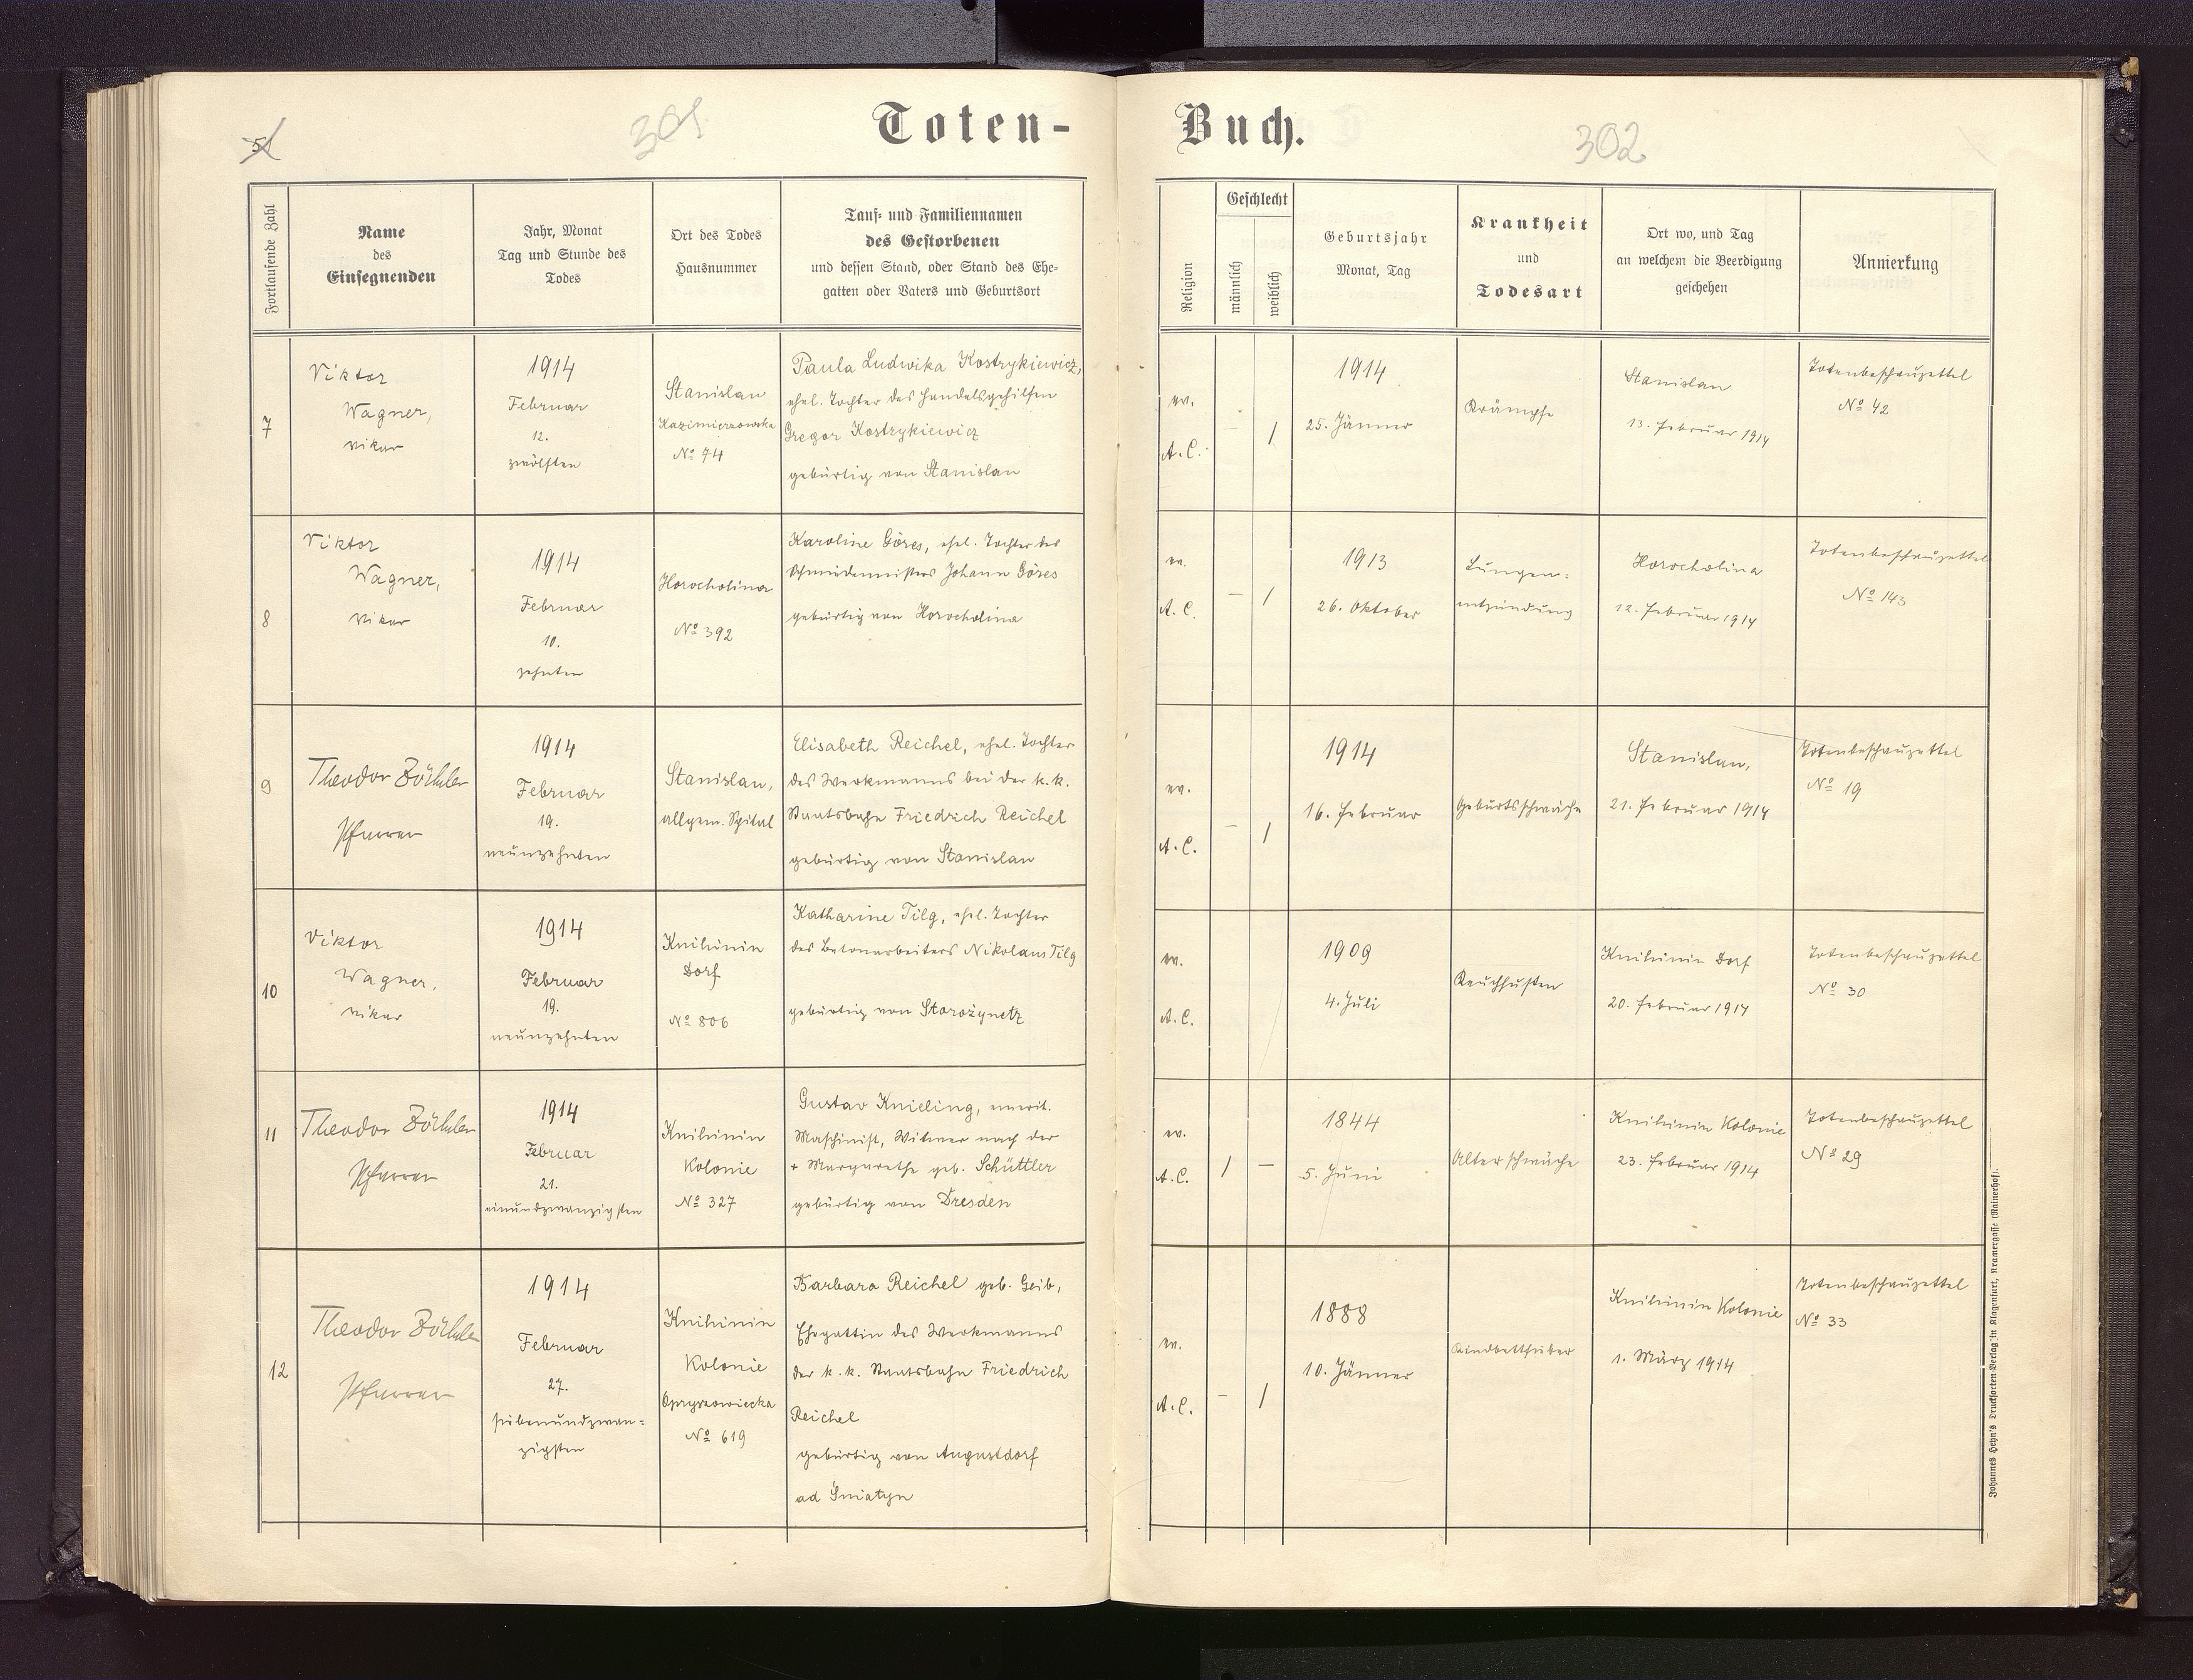 51
301
Toten-
Fortlaufende Zahl
Name
des
Einsegnenden
Jahr, Monat
Tag und Stunde des
Todes
Ort des Todes
Hausnummer
Tauf- und Familiennamen
des Gestorbenen
und dessen Stand, oder Stand des Ehe-
gatten oder Vaters und Geburtsort
7
Viktor
Wagner,
Vikar
1914
Februar
12.
zwölften
Stanislau
Kazimierzowska
No 74
Paula Ludwika Kostrykiewicz,
ehel. Tochter des Handelsgehilfen
Gregor Kostrykiewicz
gebürtig von Stanislau
8
Viktor
Wagner,
Vikar
1914
Februar
10.
zehnten
Horocholina
No 392
Karoline Göres, ehel. Tochter des
Schmiedemeisters Johann Göres
gebürtig von Horocholina
9
Theodor Zöckler
Pfarrer
1914
Februar
19.
neunzehnten
Stanislau,
allgem. Spital
Elisabeth Reichel, ehel. Tochter
des Werkmanns bei der k. k.
Staatsbahn Friedrich Reichel
gebürtig von Stanislau
10
Viktor
Wagner,
Vikar
1914
Februar
19.
neunzehnten
Knihinin
Dorf
No 806
Katharine Tilg, ehel. Tochter
des Betonarbeiters Nikolaus Tilg
gebürtig von Starożynetz
11
Theodor Zöckler
Pfarrer
1914
Februar
21.
einundzwanzigsten
Knihinin
Kolonie
No 327
Gustav Knieling, emerit.
Maschinist, Witwer nach der
+ Margarethe geb. Schüttler
gebürtig von Dresden
12
Theodor Zöckler
Pfarrer
1914
Februar
27.
siebenundzwan=
zigsten
Knihinin
Kolonie
Opryszowiecka
No 619
Barbara Reichel geb. Geib,
Ehegattin des Werkmanns
der k. k. Staatsbahn Friedrich
Reichel
gebürtig von Augustdorf
ad Śniatyn
Buch.
302
Religion
Geschlecht
männlich
weiblich
Geburtsjahr
Monat, Tag
Krankheit
und
Todesart
Ort wo, und Tag
an welchem die Beerdigung
geschehen
Anmerkung
ev.
A. C.
– 1
1914
25. Jänner
Krämpfe
Stanislau
13. Februar 1914
Totenbeschauzettel
No 42
ev.
A. C.
– 1
1913
26. Oktober
Lungen=
entzündung
Horocholina
12. Februar 1914
Totenbeschauzettel
No 143
ev.
A. C.
– 1
1914
16. Februar
Geburtsschwäche
Stanislau,
21. Februar 1914
Totenbeschauzettel
No 19
ev.
A. C.
1909
4. Juli
Keuchhusten
Knihinin Dorf
20. Februar 1914
Totenbeschauzettel
No 30
ev.
A. C.
1 –
1844
5. Juni
Altersschwäche
Knihinin Kolonie
23. Februar 1914
Totenbeschauzettel
No 29
ev.
A. C.
– 1
1888
10. Jänner
Kindbettfieber
Knihinin Kolonie
1. März 1914
Totenbeschauzettel
No 33
Johannes Heyn's Drucksorten-Verlag in Klagenfurt, Kramergasse (Rainerhof).